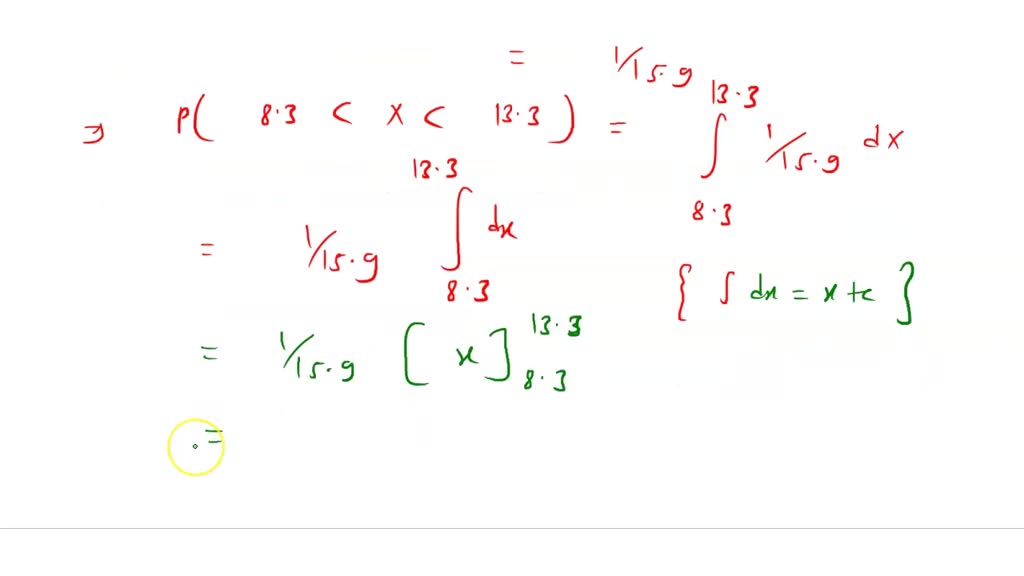 = 1/15.9
⇒ P( 8.3 < X < 13.3 ) = ∫_{8.3}^{13.3} 1/15.9 dx
= 1/15.9 ∫_{8.3}^{13.3} dx { ∫ dx = x + c }
= 1/15.9 [ x ]_{8.3}^{13.3}
=